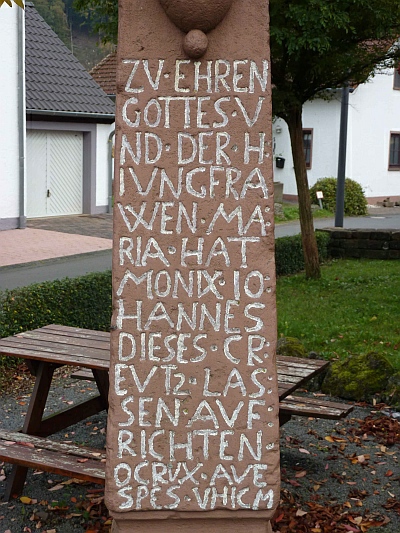 ZV·EHREN
GOTTES·V
ND·DER·H
IVNGFRA
WEN·MA
RIA·HAT
MONIX·IO
HANNES
DIESES·CR
EVTZ·LAS
SEN·AVF
RICHTEN
OCRVX·AVE
SPES·VHICM